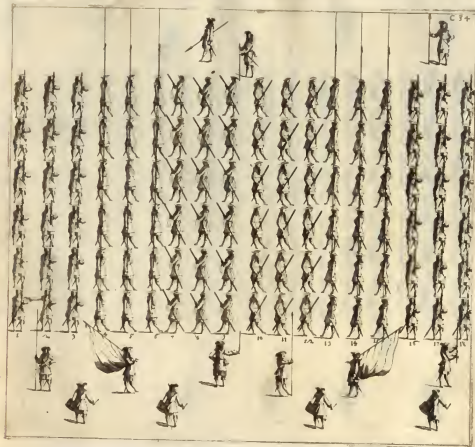 C 34
1 2 3 5 6 7 8 9 10 11 12 13 14 16 17 18